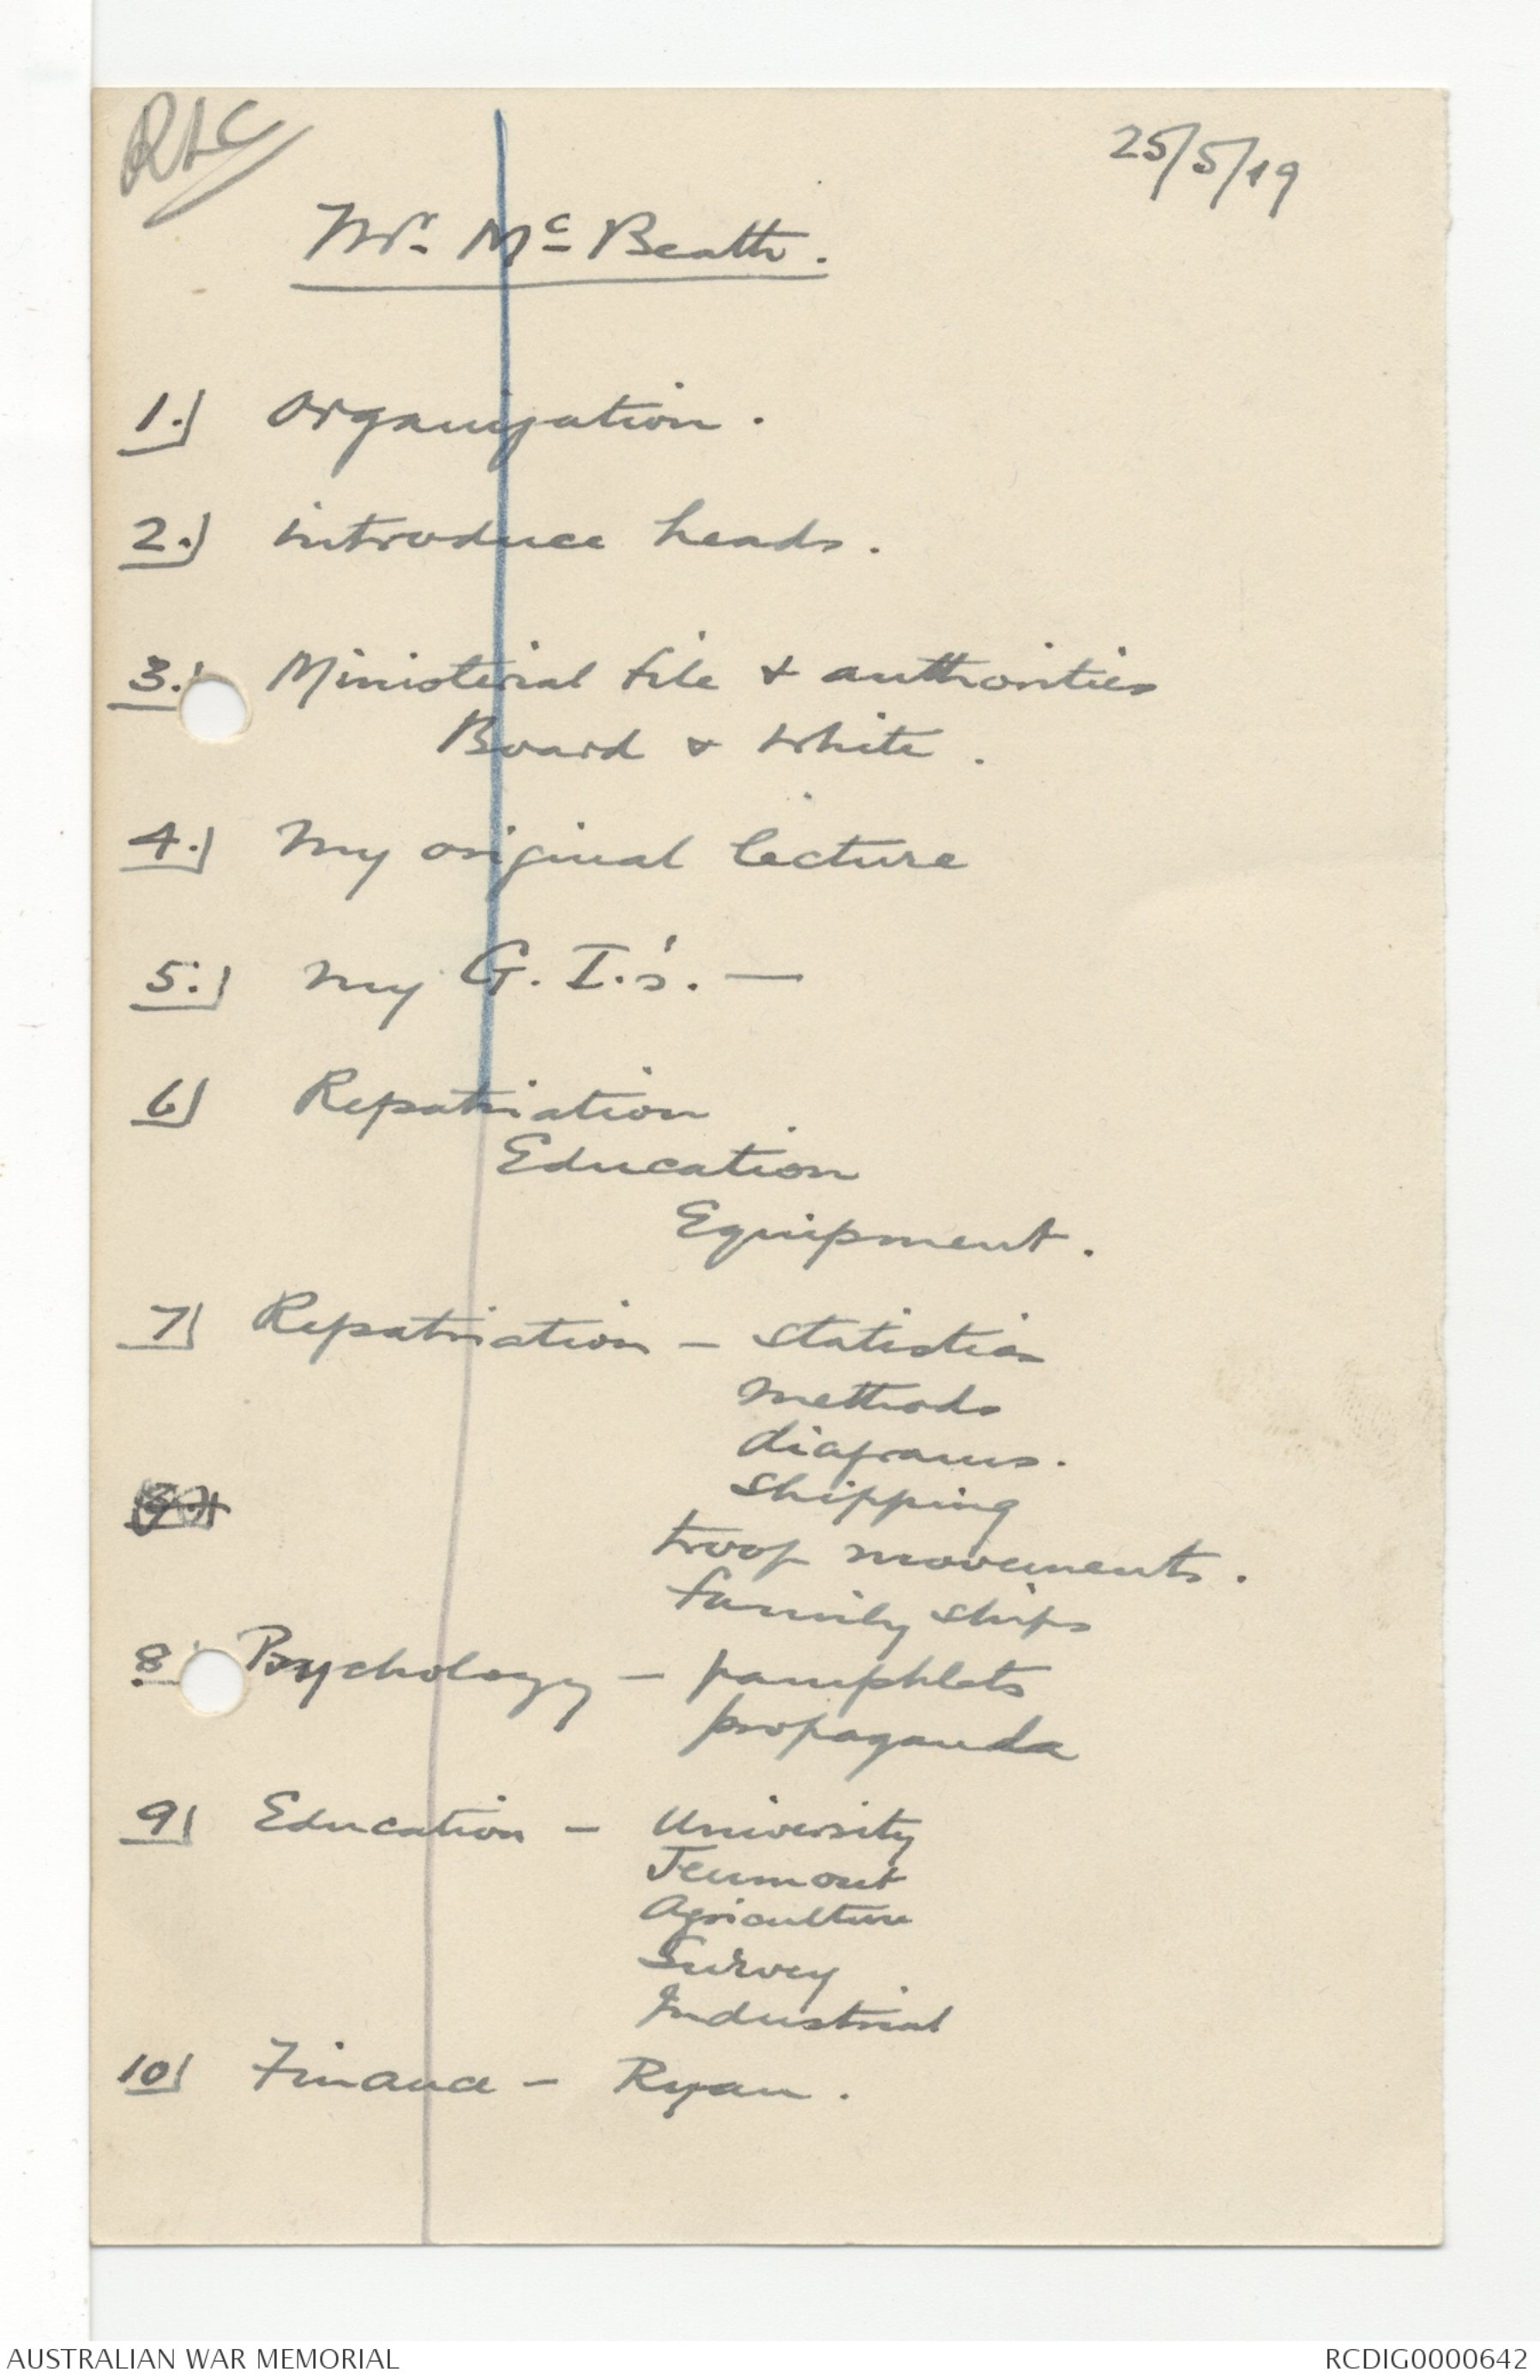 25/5/19
Mr. Mc Beath.
1.) Organization.
2.) introduce heads.
3.) Ministerial file & authorities
Board & White.
4.) My original lecture
5.) My G.I.'s. —
6) Repatriation
Education
Equipment.
7) Repatriation - statistics
methods
diagrams.
shipping
troop movements.
family ships
8 Psychology - pamphlets
propaganda
9) Education - University
Jeumont
Agriculture
Survey
Industrial
10) Finance - Ryan.
AUSTRALIAN WAR MEMORIAL
RCDIG0000642